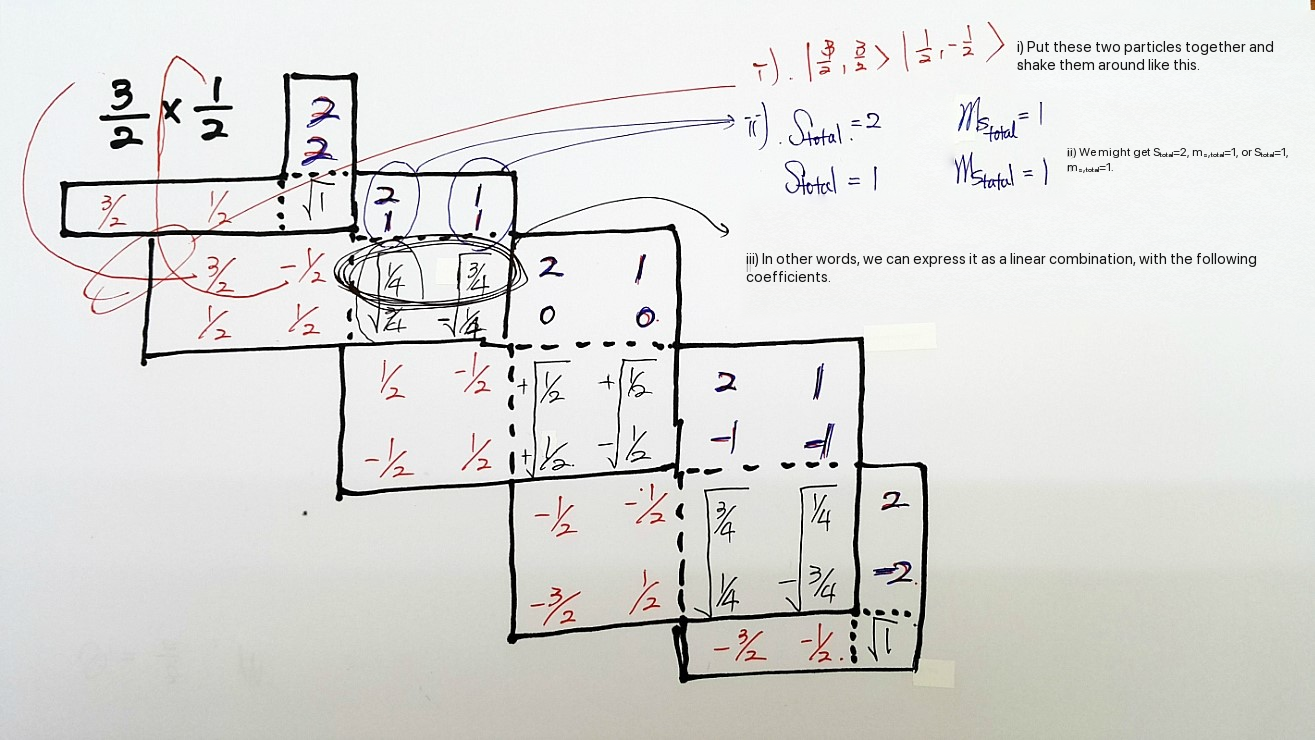 3/2 x 1/2
2
2
3/2 1/2 √1
2 1
1 1
3/2 -1/2 √1/4 √3/4
1/2 1/2 √3/4 -√1/4
2 1
0 0
1/2 -1/2 +√1/2 +√1/2
-1/2 1/2 +√1/2 -√1/2
2 1
-1 -1
-1/2 -1/2 √3/4 √1/4
-3/2 1/2 √1/4 -√3/4
2
-2
-3/2 -1/2 √1
i). |3/2, 3/2> |1/2, -1/2>
i) Put these two particles together and
shake them around like this.
ii). Stotal = 2 mstotal = 1
Stotal = 1 mstotal = 1
ii) We might get Stotal=2, ms,total=1, or Stotal=1,
ms,total=1.
iii) In other words, we can express it as a linear combination, with the following
coefficients.